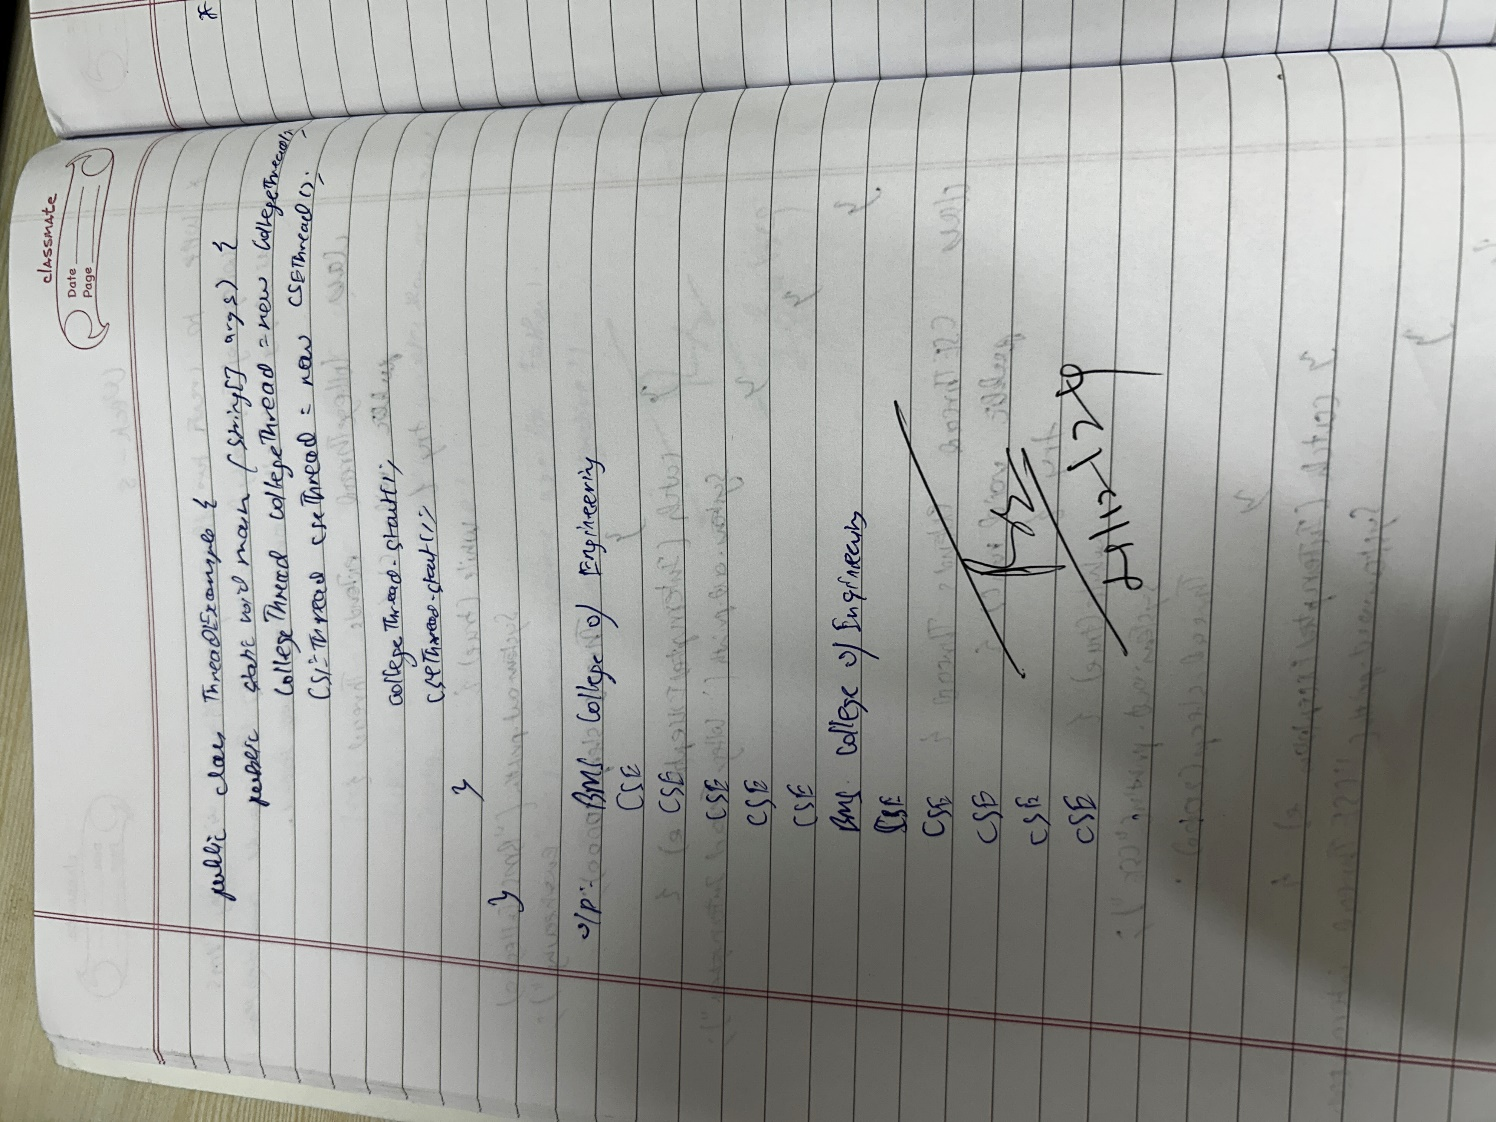 classmate
Date
Page
public class ThreadExample {
public static void main (String[] args) {
CollegeThread collegeThread = new CollegeThread();
CSEThread cseThread = new CSEThread();
collegeThread.start();
cseThread.start();
}
}
o/p:- BMS College of Engineering
CSE
CSE
CSE
CSE
CSE
BMS College of Engineering
CSE
CSE
CSE
CSE
CSE